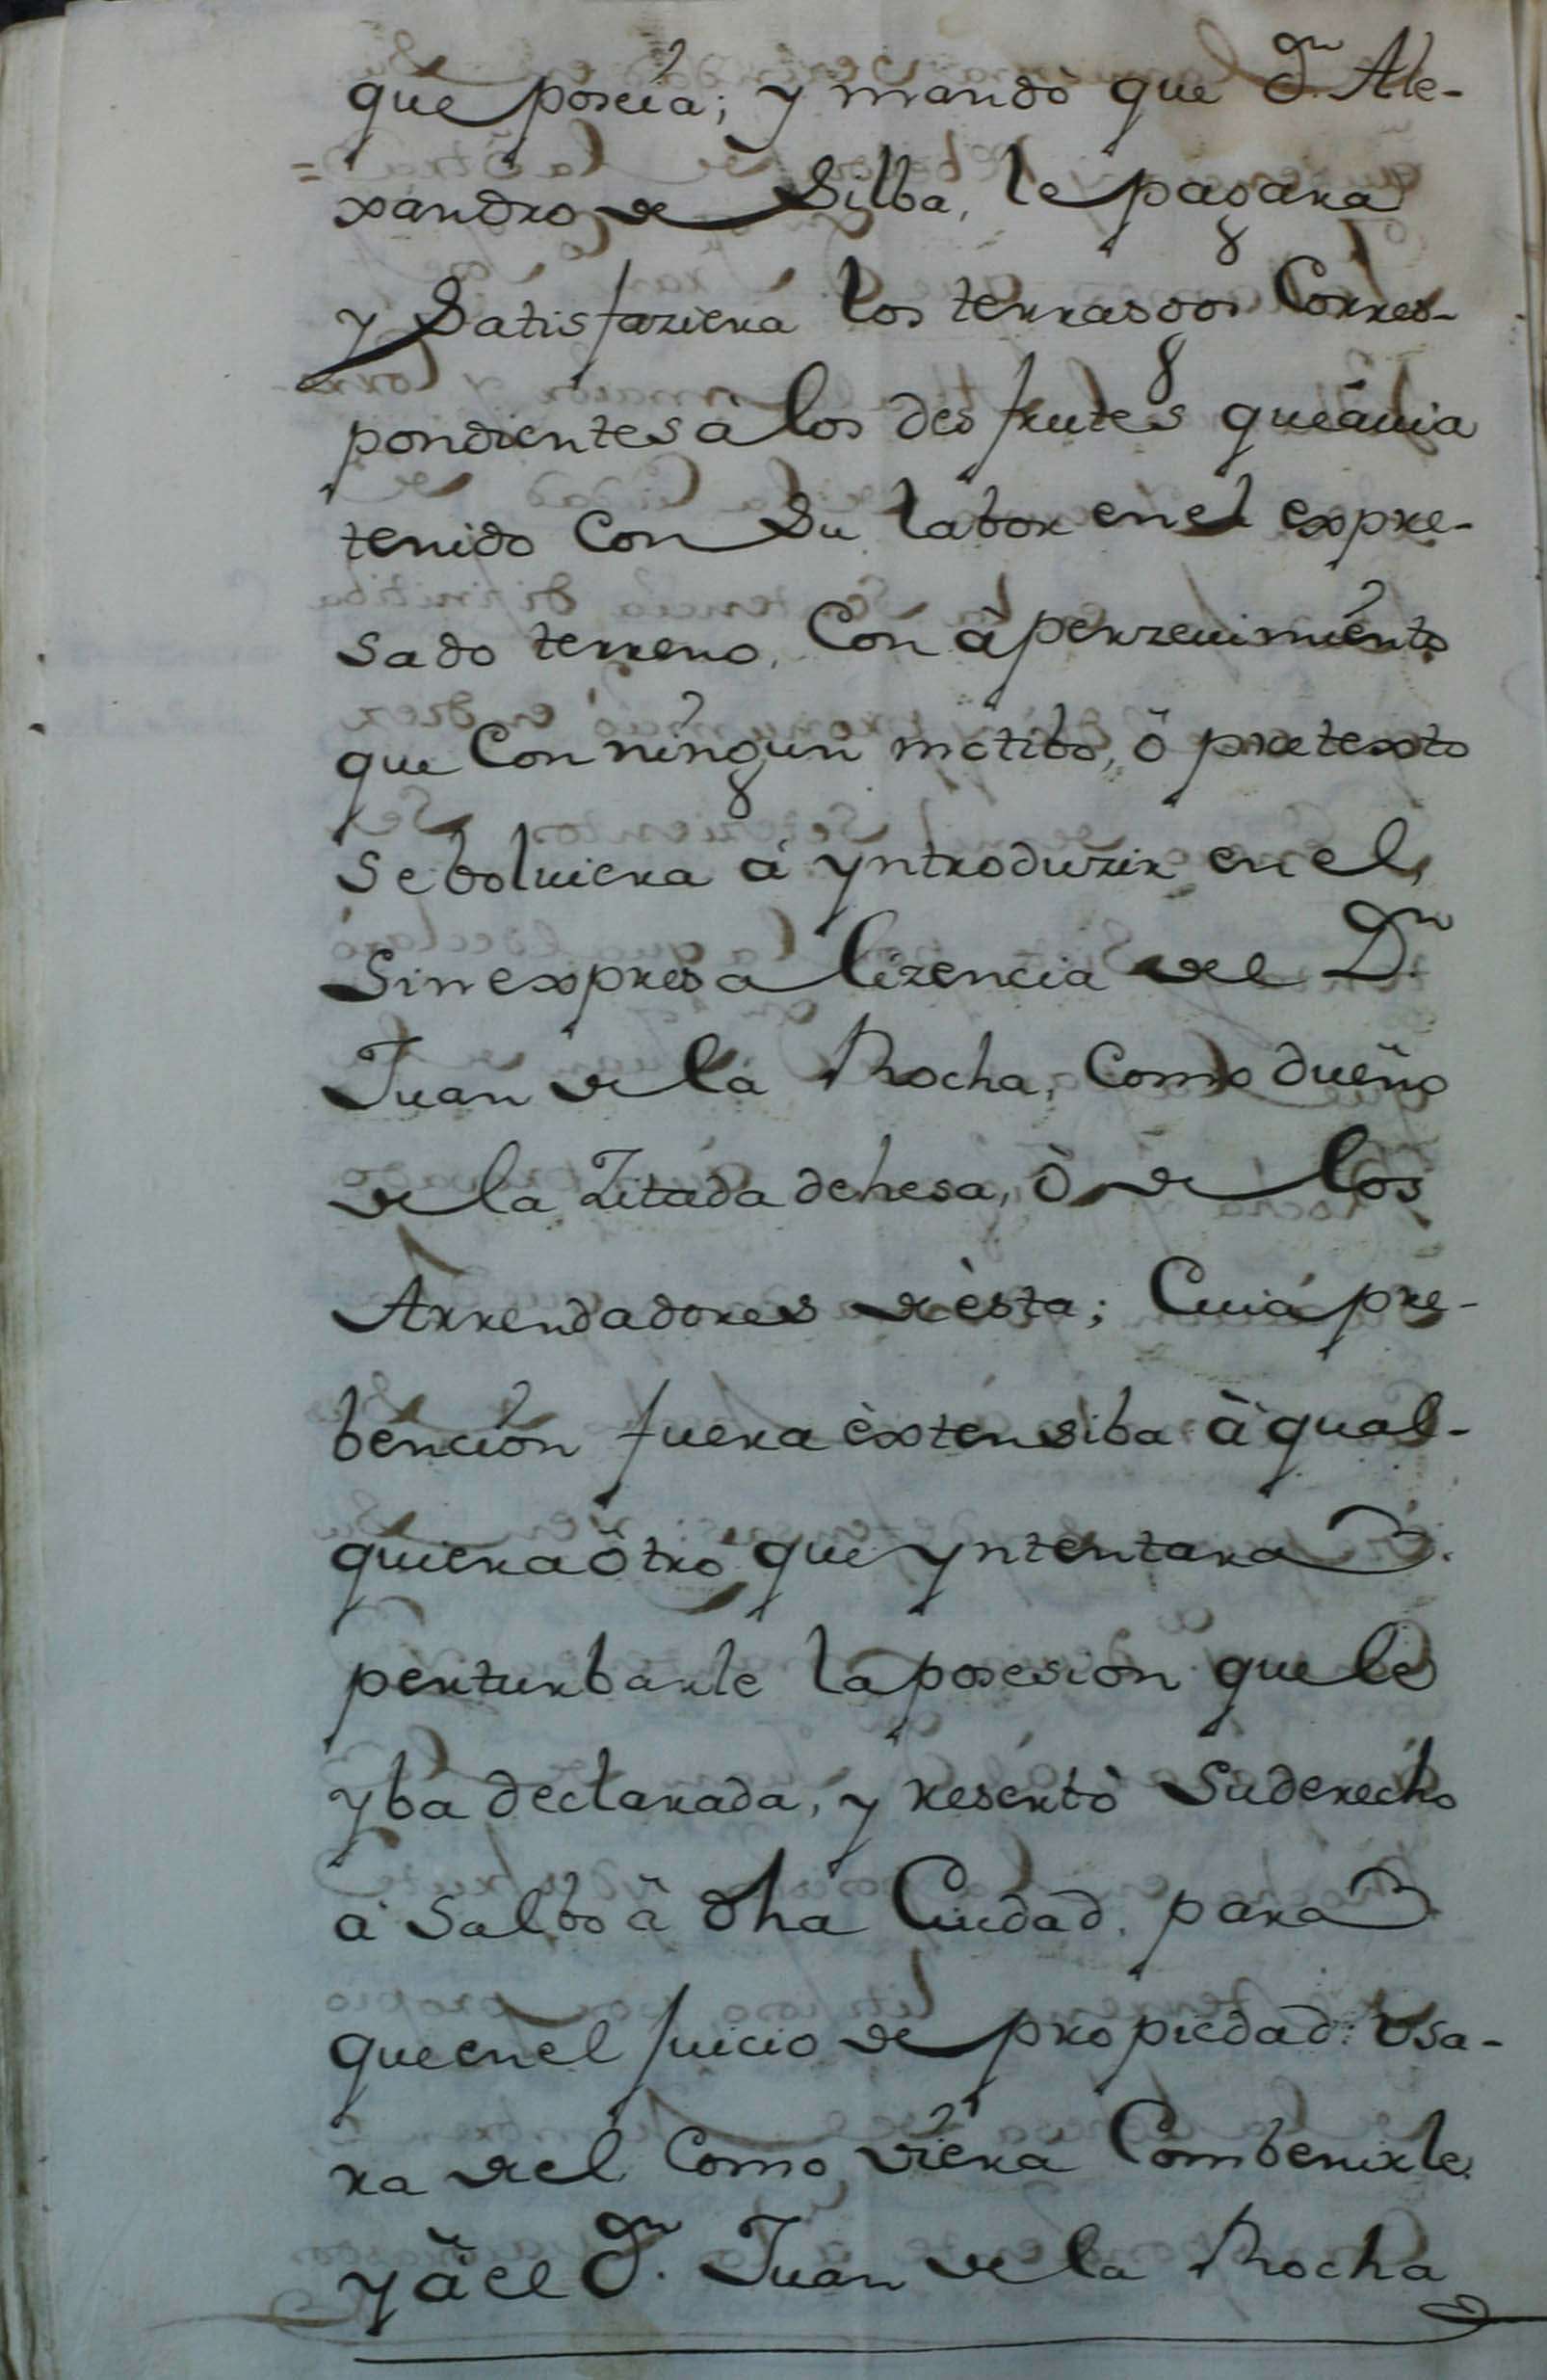 que poseia; y mandò que Dn. Ale-
xandro de Silba, le pagara
y Satisfaziera los terrasgos Corres-
pondientes a los desfrutes que àuia
tenido Con Su labor en el expre-
sado terreno, Con àperzeuimiento
que Con ningun motibo, ò pretexto
Se boluiera à yntroduzir en el,
Sin expresa lizencia del Dn.
Juan de la Rocha, Como dueño
de la Zitada dehesa, ò de los
Arrendadores de èsta; Cuia pre-
bencion fuera èxtensiba à qual-
quiera òtro que yntentara
perturbarle la posesion que le
yba declarada, y reserbò Su derecho
à Salbo à dha Ciudad, para
que en el Juicio de propiedad usa-
ra del Como viera Combenirle,
y àel Dn. Juan de la Rocha